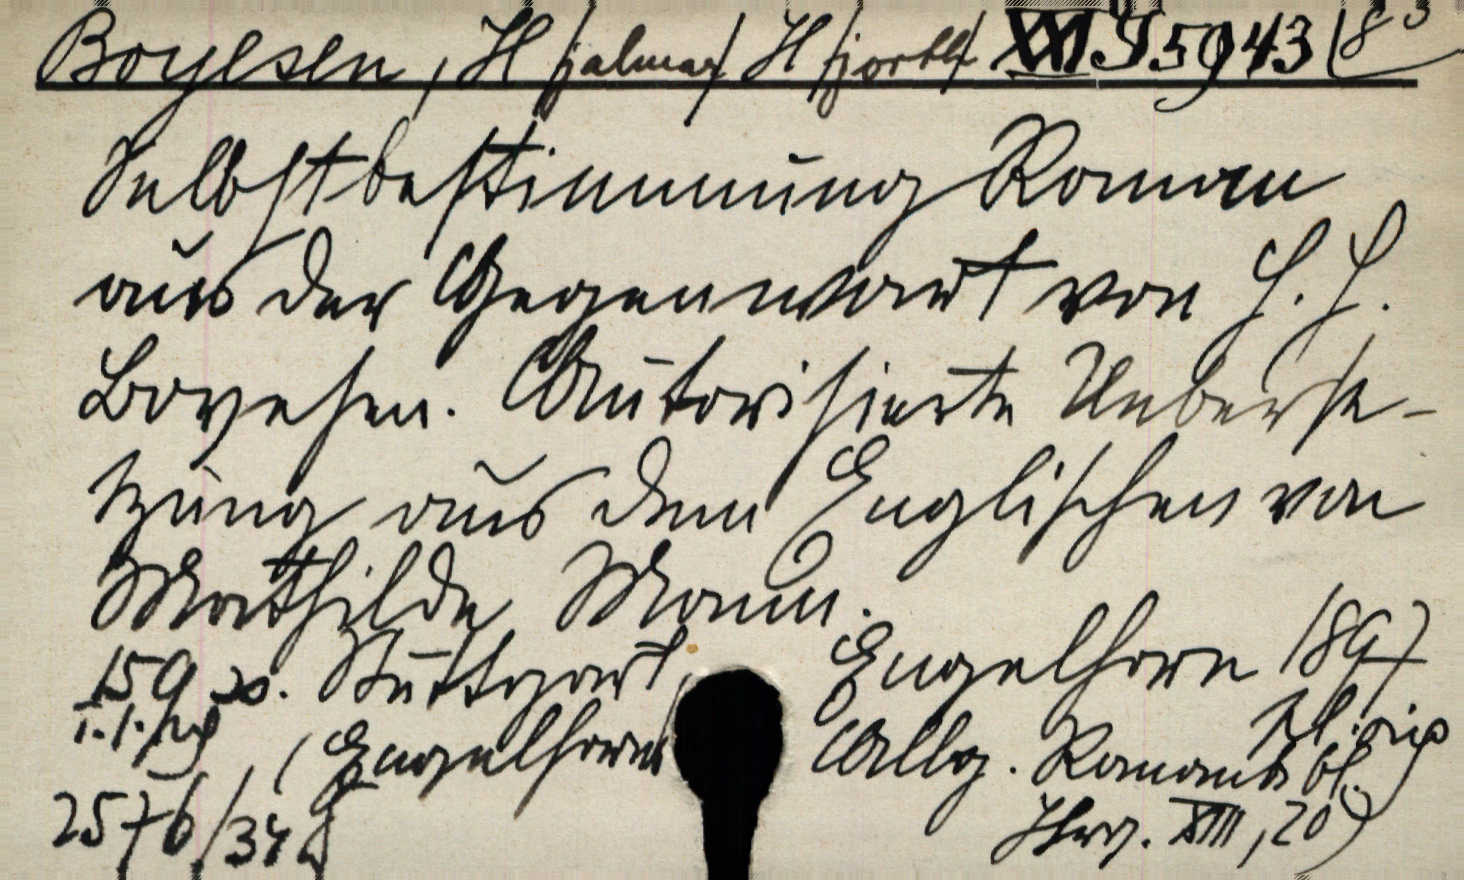 Boyesen, H/jalmar/ H/jorth/ XXI J 5943 (8°
Selbstbestimmung Roman
aus der Gegenwart von H. H.
Boyesen. Autorisierte Ueberse-
tzung aus dem Englischen von
Mathilde Mann.
159 S. Stuttgart, Engelhorn 1897
Kl. 8°
(Engelhorns Allg. Romanbibl.
Jhrg. XIII, 20)
2576/34